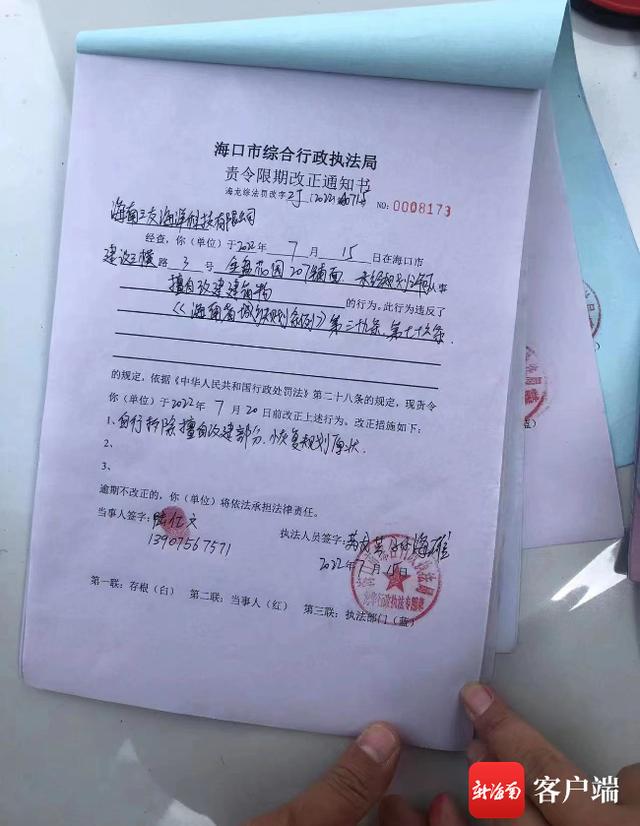 海口市综合行政执法局
责令限期改正通知书
海龙综法责改字
NO: 0008173
海南三友海洋科技有限公司
经查，你（单位）于2022年 7 月 15 日在海口市
建设三横 路 3 号 金盘花园207铺面，未经规划许可从事
擅自改建建筑物 的行为。此行为违反了
《海南省城乡规划条例》第三十九条、第六十六条
的规定，依据《中华人民共和国行政处罚法》第二十八条的规定，现责令
你（单位）于2022年 7 月 20日前改正上述行为。改正措施如下：
1、自行拆除擅自改建部分，恢复规划原状。
2、
3、
逾期不改正的，你（单位）将依法承担法律责任。
当事人签字：
13907567571
执法人员签字：
2022年7月15日
第一联：存根（白） 第二联：当事人（红） 第三联：执法部门（蓝）
新海南 客户端